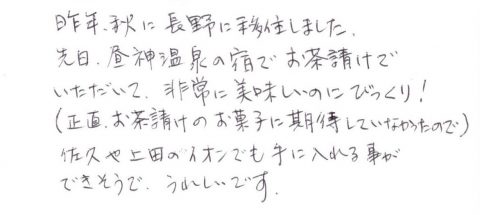 昨年、秋に長野に移住しました。
先日、昼神温泉の宿でお茶請けで
いただいて、非常に美味しいのにびっくり！
(正直、お茶請けのお菓子に期待していなかったので)
佐久や上田のイオンでも手に入れる事が
できそうで、うれしいです。